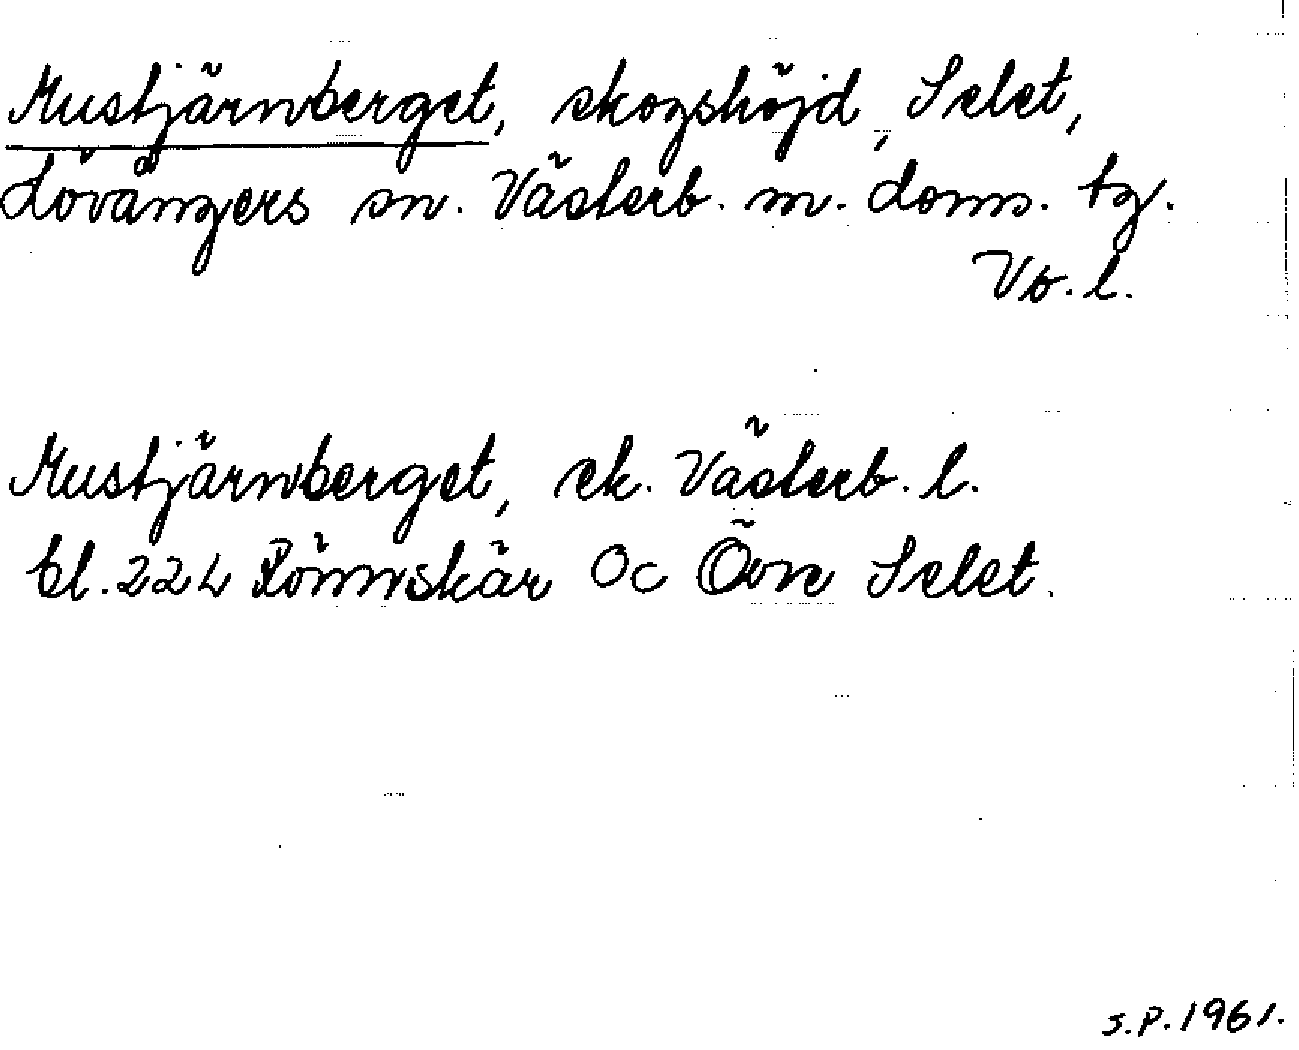 Mustjärnberget, skogshöjd, Selet,
Lövångers sn. Västerb. m. doms. tg.
Vb. l.
Mustjärnberget, ek. Västerb. l.
bl. 224 Rönnskär Oc Övre Selet.
S.P. 1961.